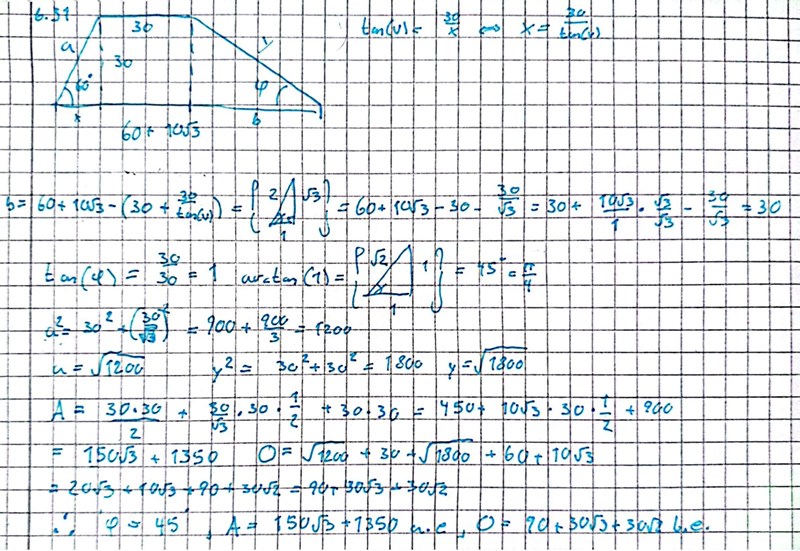 6.31
30
tan(v) = 30/x ⇔ x = 30/tan(v)
a
30
y
60°
φ
x
b
60 + 10√3
b = 60 + 10√3 - (30 + 30/tan(v)) = { 2 √3 1 } = 60 + 10√3 - 30 - 30/√3 = 30 + 10√3/1 · √3/√3 - 30/√3 = 30
tan(φ) = 30/30 = 1 arctan(1) = { √2 1 1 } = 45° = π/4
a² = 30² + (30/√3)² = 900 + 900/3 = 1200
a = √1200 y² = 30² + 30² = 1800 y = √1800
A = 30·30/2 + 30/√3 · 30 · 1/2 + 30·30 = 450 + 10√3 · 30 · 1/2 + 900
= 150√3 + 1350 O = √1200 + 30 + √1800 + 60 + 10√3
= 20√3 + 10√3 + 90 + 30√2 = 90 + 30√3 + 30√2
∴ φ = 45°, A = 150√3 + 1350 a.e, O = 90 + 30√3 + 30√2 l.e.